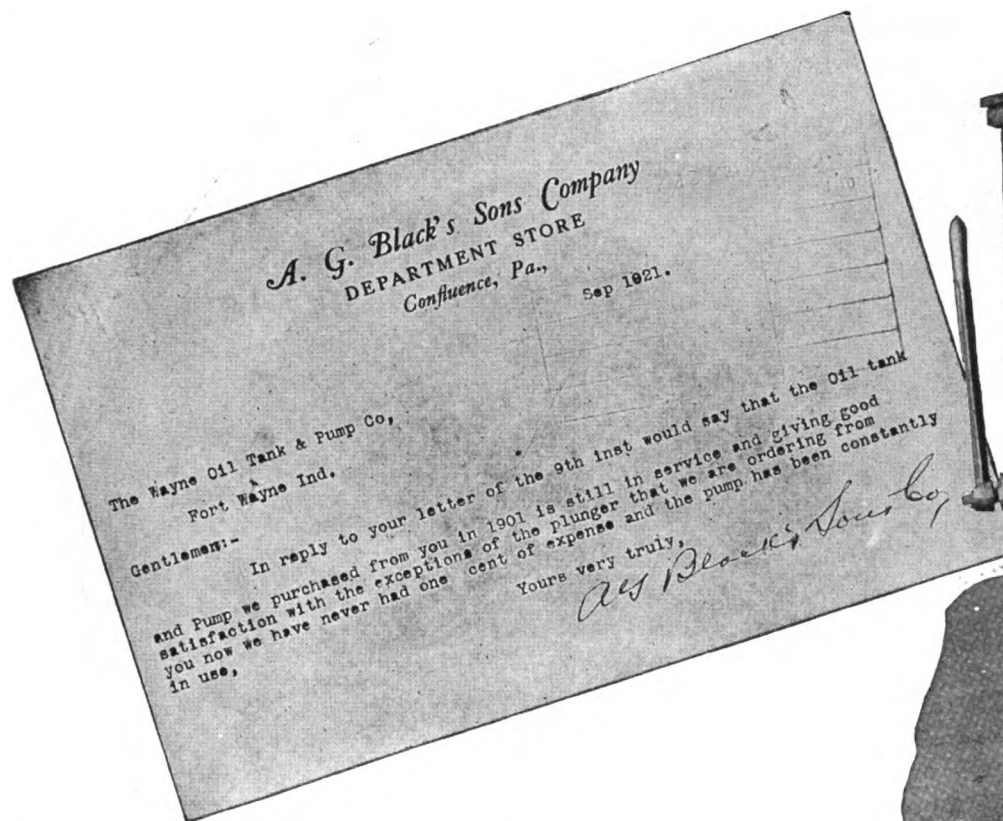 A. G. Black's Sons Company
DEPARTMENT STORE
Confluence, Pa.,
Sep 1921.
The Wayne Oil Tank & Pump Co,
Fort Wayne Ind.
Gentlemen:-
In reply to your letter of the 9th inst would say that the Oil tank
and Pump we purchased from you in 1901 is still in service and giving good
satisfaction with the exceptions of the plunger that we are ordering from
you now we have never had one cent of expense and the pump has been constantly
in use,
Yours very truly,
A G Black's Sons Co,